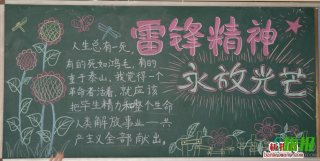 雷锋精神
永放光芒
人生总有一死
有的死如鸿毛,有的
重于泰山,我觉得一个
革命者活着,就应该
把毕生精力和整个生命
人类解放事业一共
产主义全部献出。